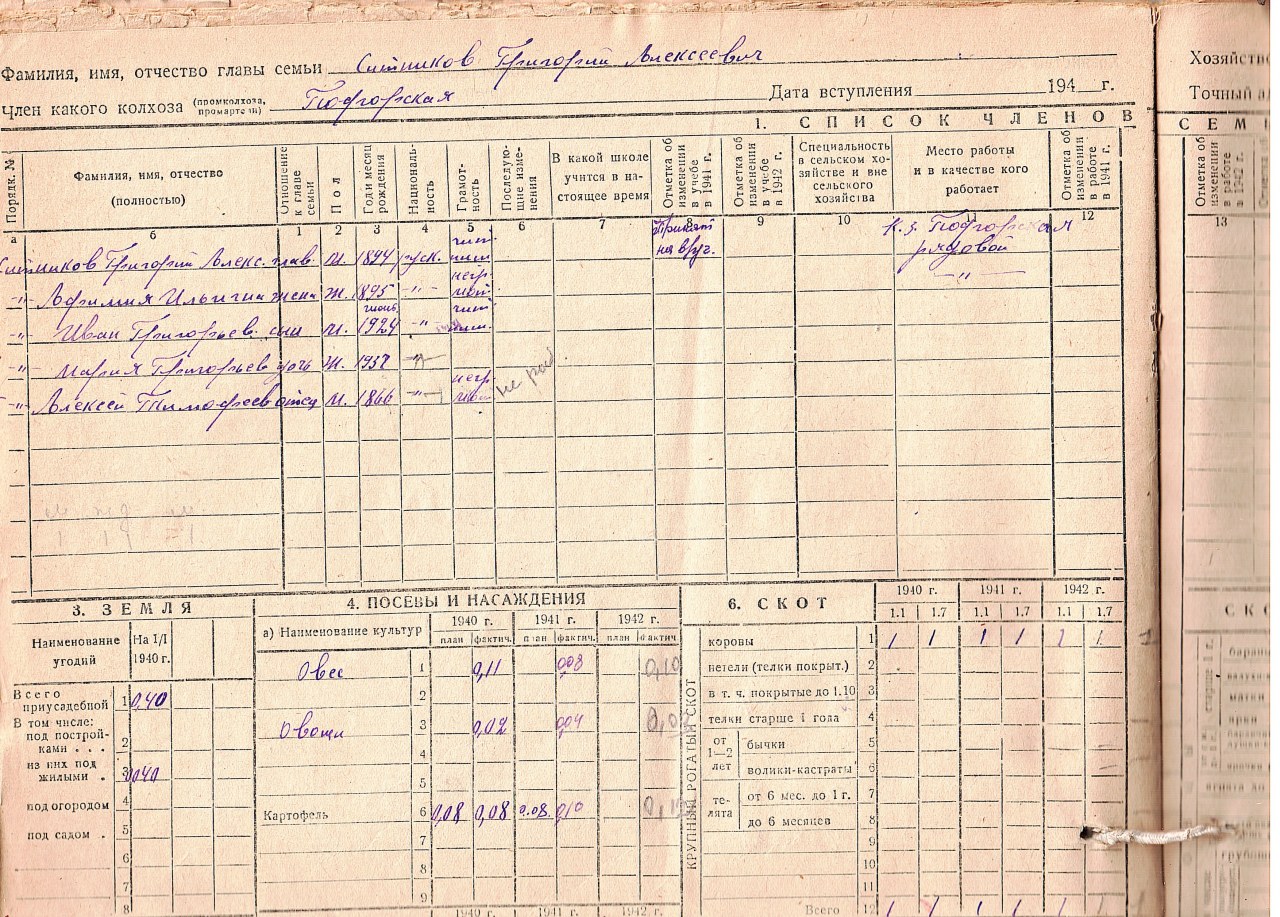 Фамилия, имя, отчество главы семьи Ситников Григорий Алексеевич
Член какого колхоза (промколхоза, промартели) Подгорская Дата вступления 194 г.
1. СПИСОК ЧЛЕНОВ
Порядк. №
Фамилия, имя, отчество (полностью)
Отношение к главе семьи
Пол
Год и месяц рождения
Националь-ность
Грамот-ность
Последую-щие изме-нения
В какой школе учится в на-стоящее время
Отметка об изменении в учебе в 1941 г.
Отметка об изменении в учебе в 1942 г.
Специальность в сельском хо-зяйстве и вне сельского хозяйства
Место работы и в качестве кого работает
Отметка об изменении в работе в 1941 г.
а б 1 2 3 4 5 6 7 8 9 10 11 12
Ситников Григорий Алекс. глав. м. 1894 русск. к.з. Подгорская рядовой
-"- Афимия Ильинич жена ж. 1895 -"- негр -"-
-"- Иван Григорьев. сын м. июнь 1924 -"-
-"- Мария Григорьев дочь ж. -"-
-"- Алексей Тимофеев отец м. 1866 -"- негр не раб
3. ЗЕМЛЯ
Наименование угодий На 1/I 1940 г.
Всего приусадебной 1 0,40
В том числе: под построй-ками . . . 2
из них под жилыми . 3 040
под огородом 4
под садом . 5
6
7
8
4. ПОСЕВЫ И НАСАЖДЕНИЯ
а) Наименование культур 1940 г. 1941 г. 1942 г.
план фактич. план фактич. план фактич
Овес 1 0,11 0,08 0,10
2
Овощи 3 0,02 0,04
4
5
Картофель 6 0,08 0,08 0.08. 0,10
7
8
9
1940 г. 1941 г. 1942 г.
6. СКОТ
1940 г. 1941 г. 1942 г.
1.1 1.7 1.1 1.7 1.1 1.7
КРУПНЫЙ РОГАТЫЙ СКОТ
коровы 1 1 1 1 1 1 1
нетели (телки покрыт.) 2
в т. ч. покрытые до 1.10 3
телки старше 1 года 4
от 1—2 лет бычки 5
волики-кастраты 6
те-лята от 6 мес. до 1 г. 7
до 6 месяцев 8
9
10
11
Всего 12 1 1 1 1 1 1
Хозяйств
Точный
СЕМ
Отметка об изменении в работе в 1942 г.
13
СКО